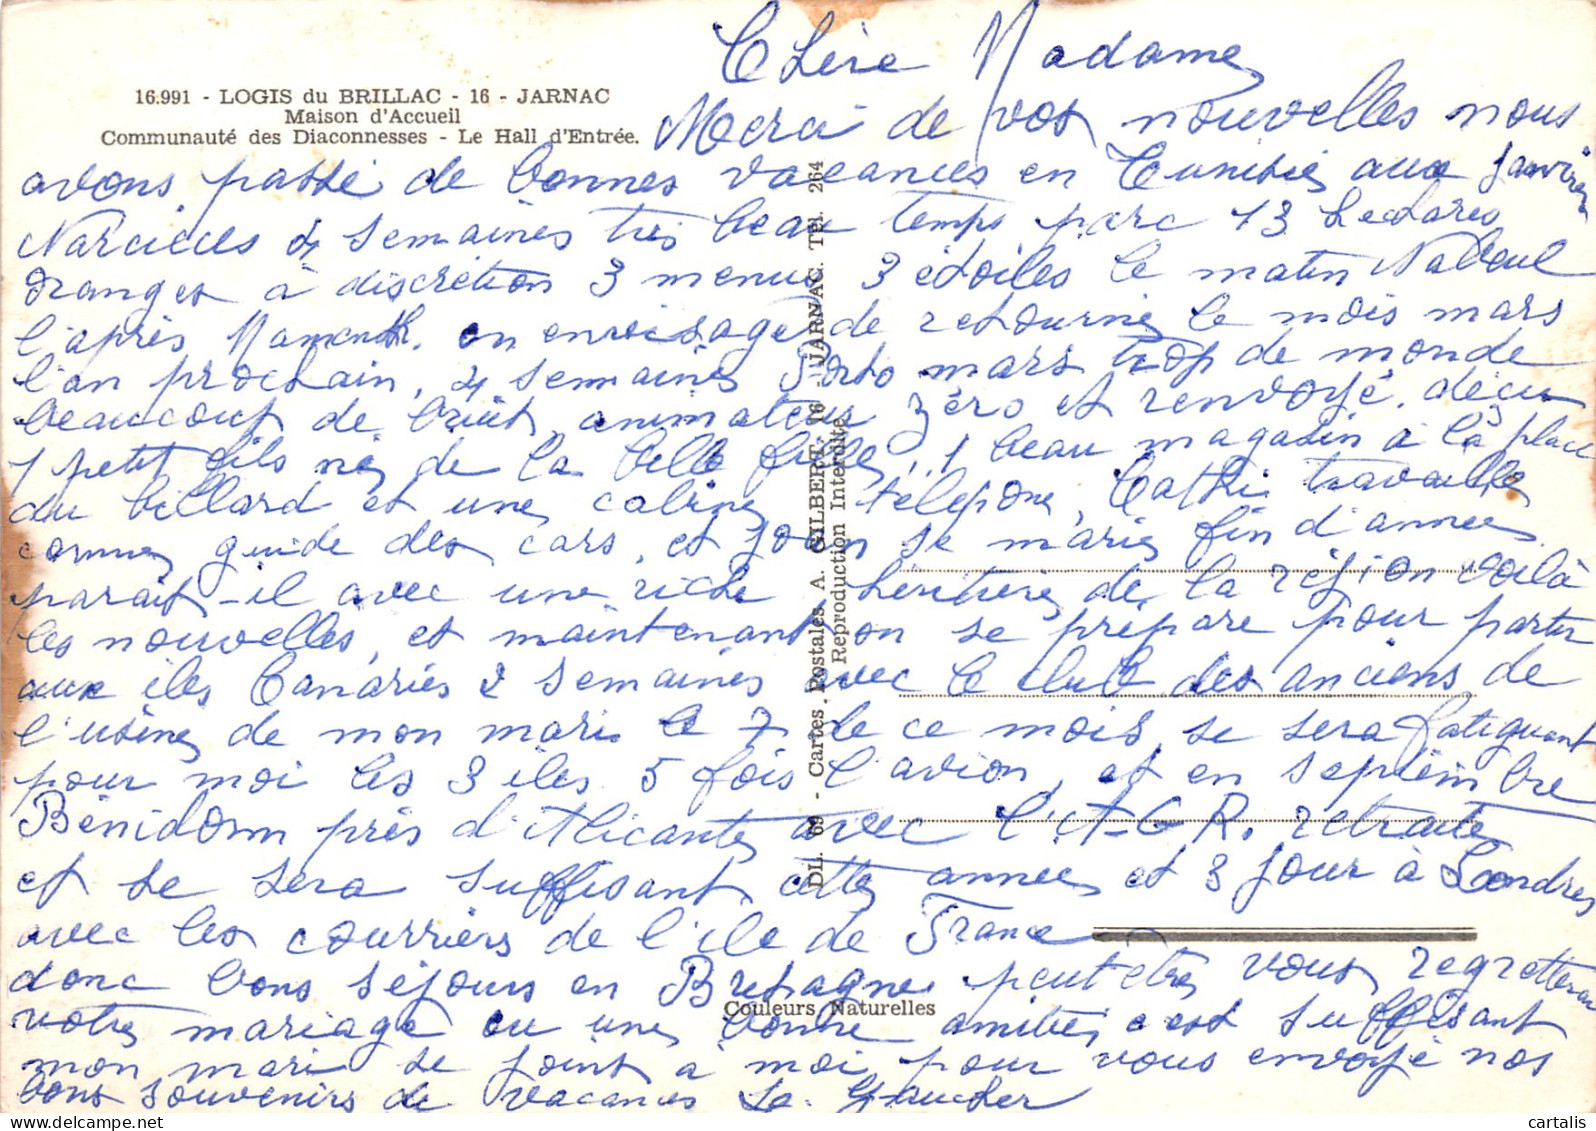 16.991 - LOGIS du BRILLAC - 16 - JARNAC
Maison d'Accueil
Communauté des Diaconnesses - Le Hall d'Entrée.
Chère Madame
Merci de vos nouvelles nous
avons passé de bonnes vacances en Tunisie aux janvier
Narcisses 4 semaines très beau temps parc 13 hectares
oranges à discrétion 3 menus 3 étoiles le matin Nabeul
l'après Hamenth. on envisage de retourne le mois mars
l'an prochain, 4 semaines mars trop de monde
beaucoup de bruit, animateur zéro et renvoyé. déçu
1 petit fils né de la belle fille, 1 beau magasin à la place
du billard et une cabine télépone, Cathi travaille
comme guide des cars, et se marie fin d'année
parait-il avec une riche héritière de la région voilà
les nouvelles, et maintenant on se prépare pour partir
aux iles Canaries 2 semaines avec le club des anciens de
l'usine de mon mari le 7 de ce mois, se sera fatiguant
pour moi les 3 iles 5 fois l'avion, et en septembre
Bénidorm près d'Alicante avec l'A-G-R. retraite
et se sera suffisant cette année et 3 jour à Londres
avec les courriers de l'ile de France
donc bons séjours en Bretagne peut etre vous regretterai
votre mariage ou une bonne amitié, c'est suffisant
mon mari se joint à moi pour vous envoyé nos
bons souvenirs de vacances Le Gaucher
DL. 69 - Cartes Postales A. GILBERT, 16 JARNAC. Tél. 264
Reproduction Interdite
Couleurs Naturelles
© cartalis - delcampe.net